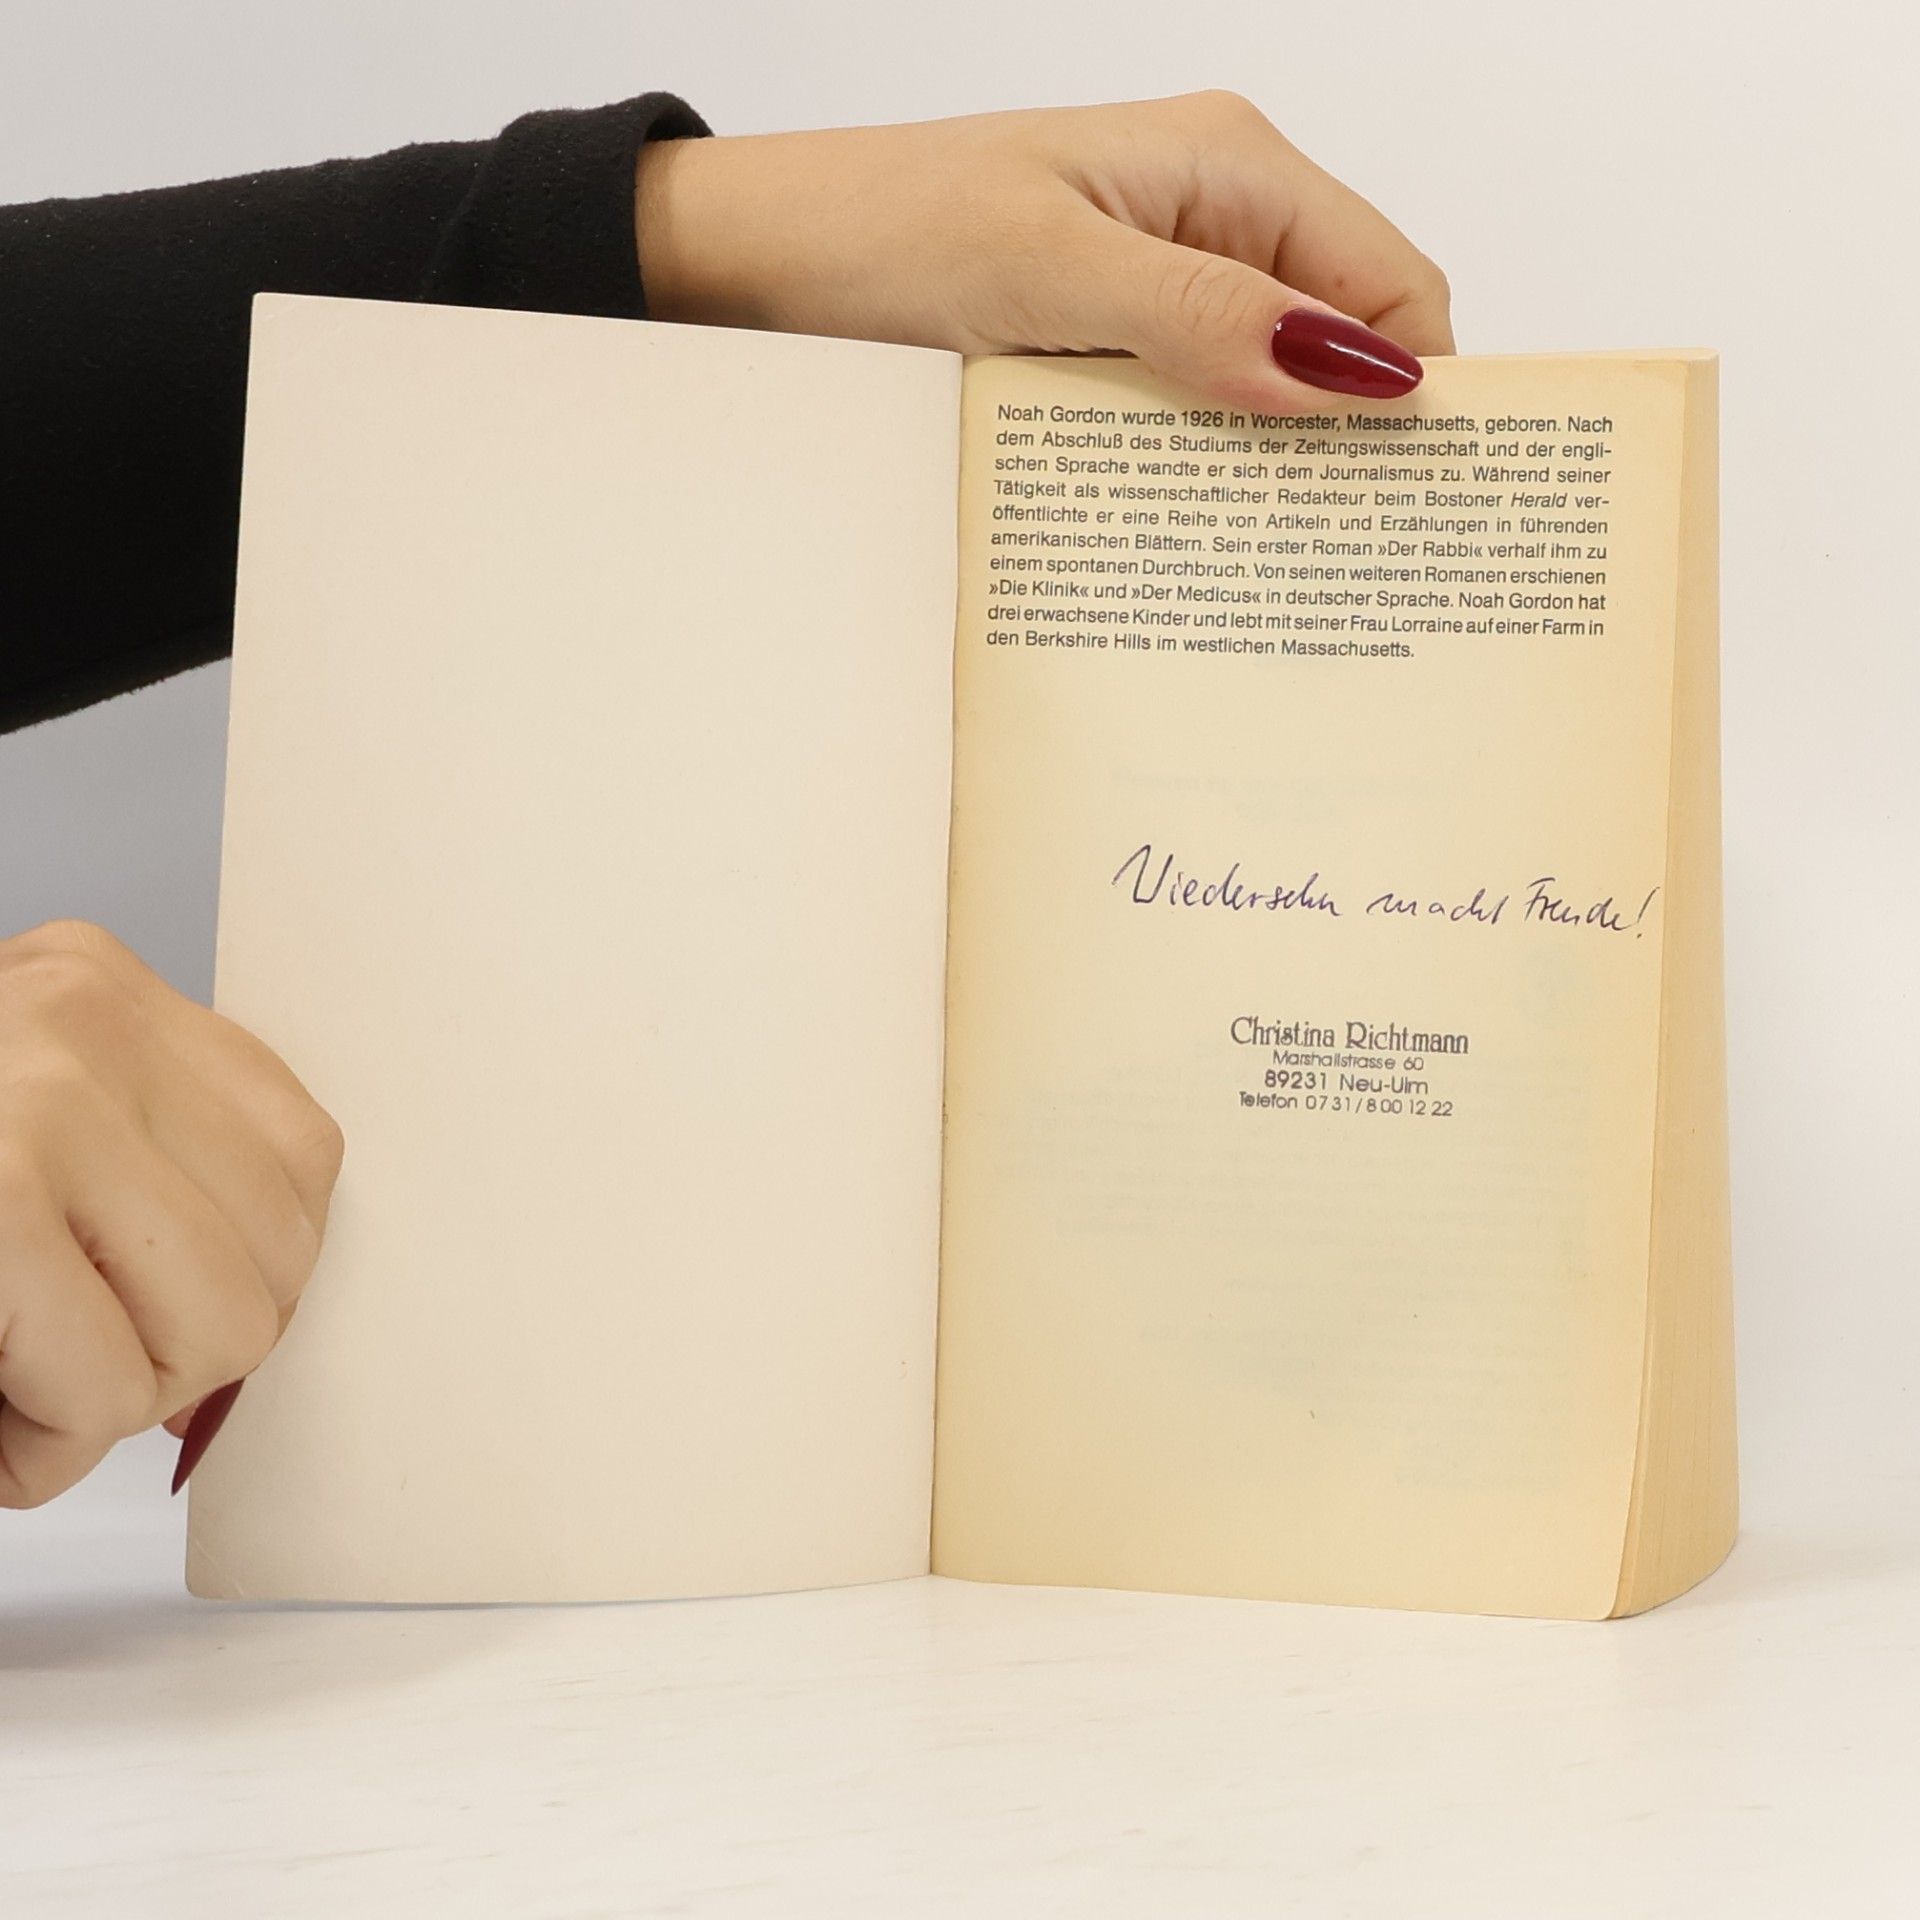 Noah Gordon wurde 1926 in Worcester, Massachusetts, geboren. Nach
dem Abschluß des Studiums der Zeitungswissenschaft und der engli-
schen Sprache wandte er sich dem Journalismus zu. Während seiner
Tätigkeit als wissenschaftlicher Redakteur beim Bostoner Herald ver-
öffentlichte er eine Reihe von Artikeln und Erzählungen in führenden
amerikanischen Blättern. Sein erster Roman »Der Rabbi« verhalf ihm zu
einem spontanen Durchbruch. Von seinen weiteren Romanen erschienen
»Die Klinik« und »Der Medicus« in deutscher Sprache. Noah Gordon hat
drei erwachsene Kinder und lebt mit seiner Frau Lorraine auf einer Farm in
den Berkshire Hills im westlichen Massachusetts.
Wiedersehn macht Freude!
Christina Richtmann
Marshallstrasse 60
89231 Neu-Ulm
Telefon 0731/8001222